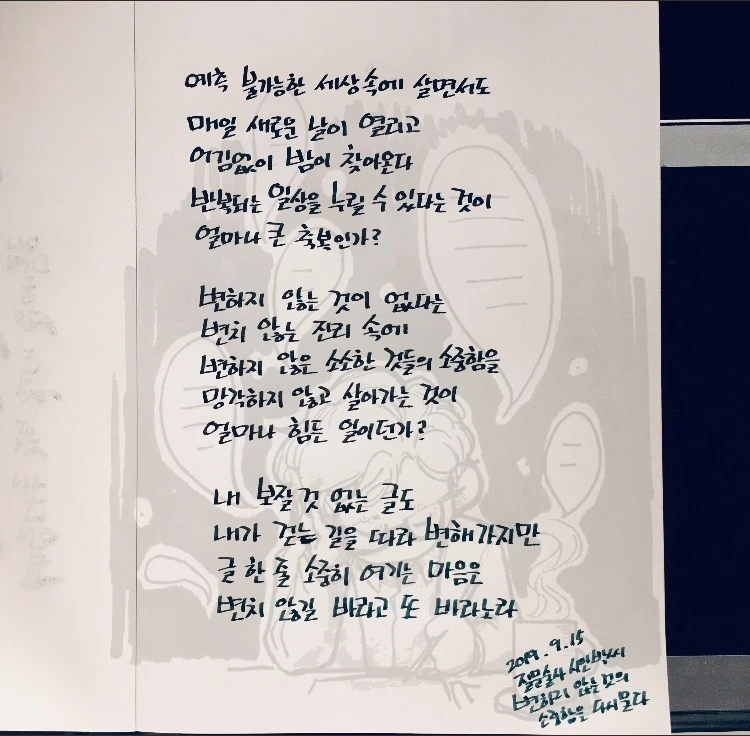 예측 불가능한 세상 속에 살면서도
매일 새로운 날이 열리고
어김없이 밤이 찾아온다
반복되는 일상을 누릴 수 있다는 것이
얼마나 큰 축복인가?
변하지 않는 것이 없다는
변치 않는 진리 속에
변하지 않은 소소한 것들의 소중함을
망각하지 않고 살아가는 것이
얼마나 힘든 일이던가?
내 보잘 것 없는 글도
내가 걷는 길을 따라 변해가지만
글 한 줄 소중히 여기는 마음은
변치 않길 바라고 또 바라노라
2019. 9. 15
변하지 않는 것의
소중함을 다시 묻다